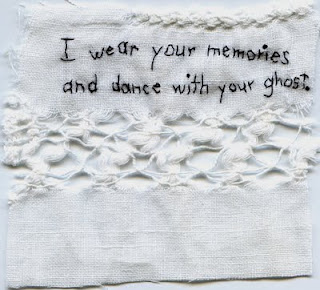 I wear your memories
and dance with your ghost.